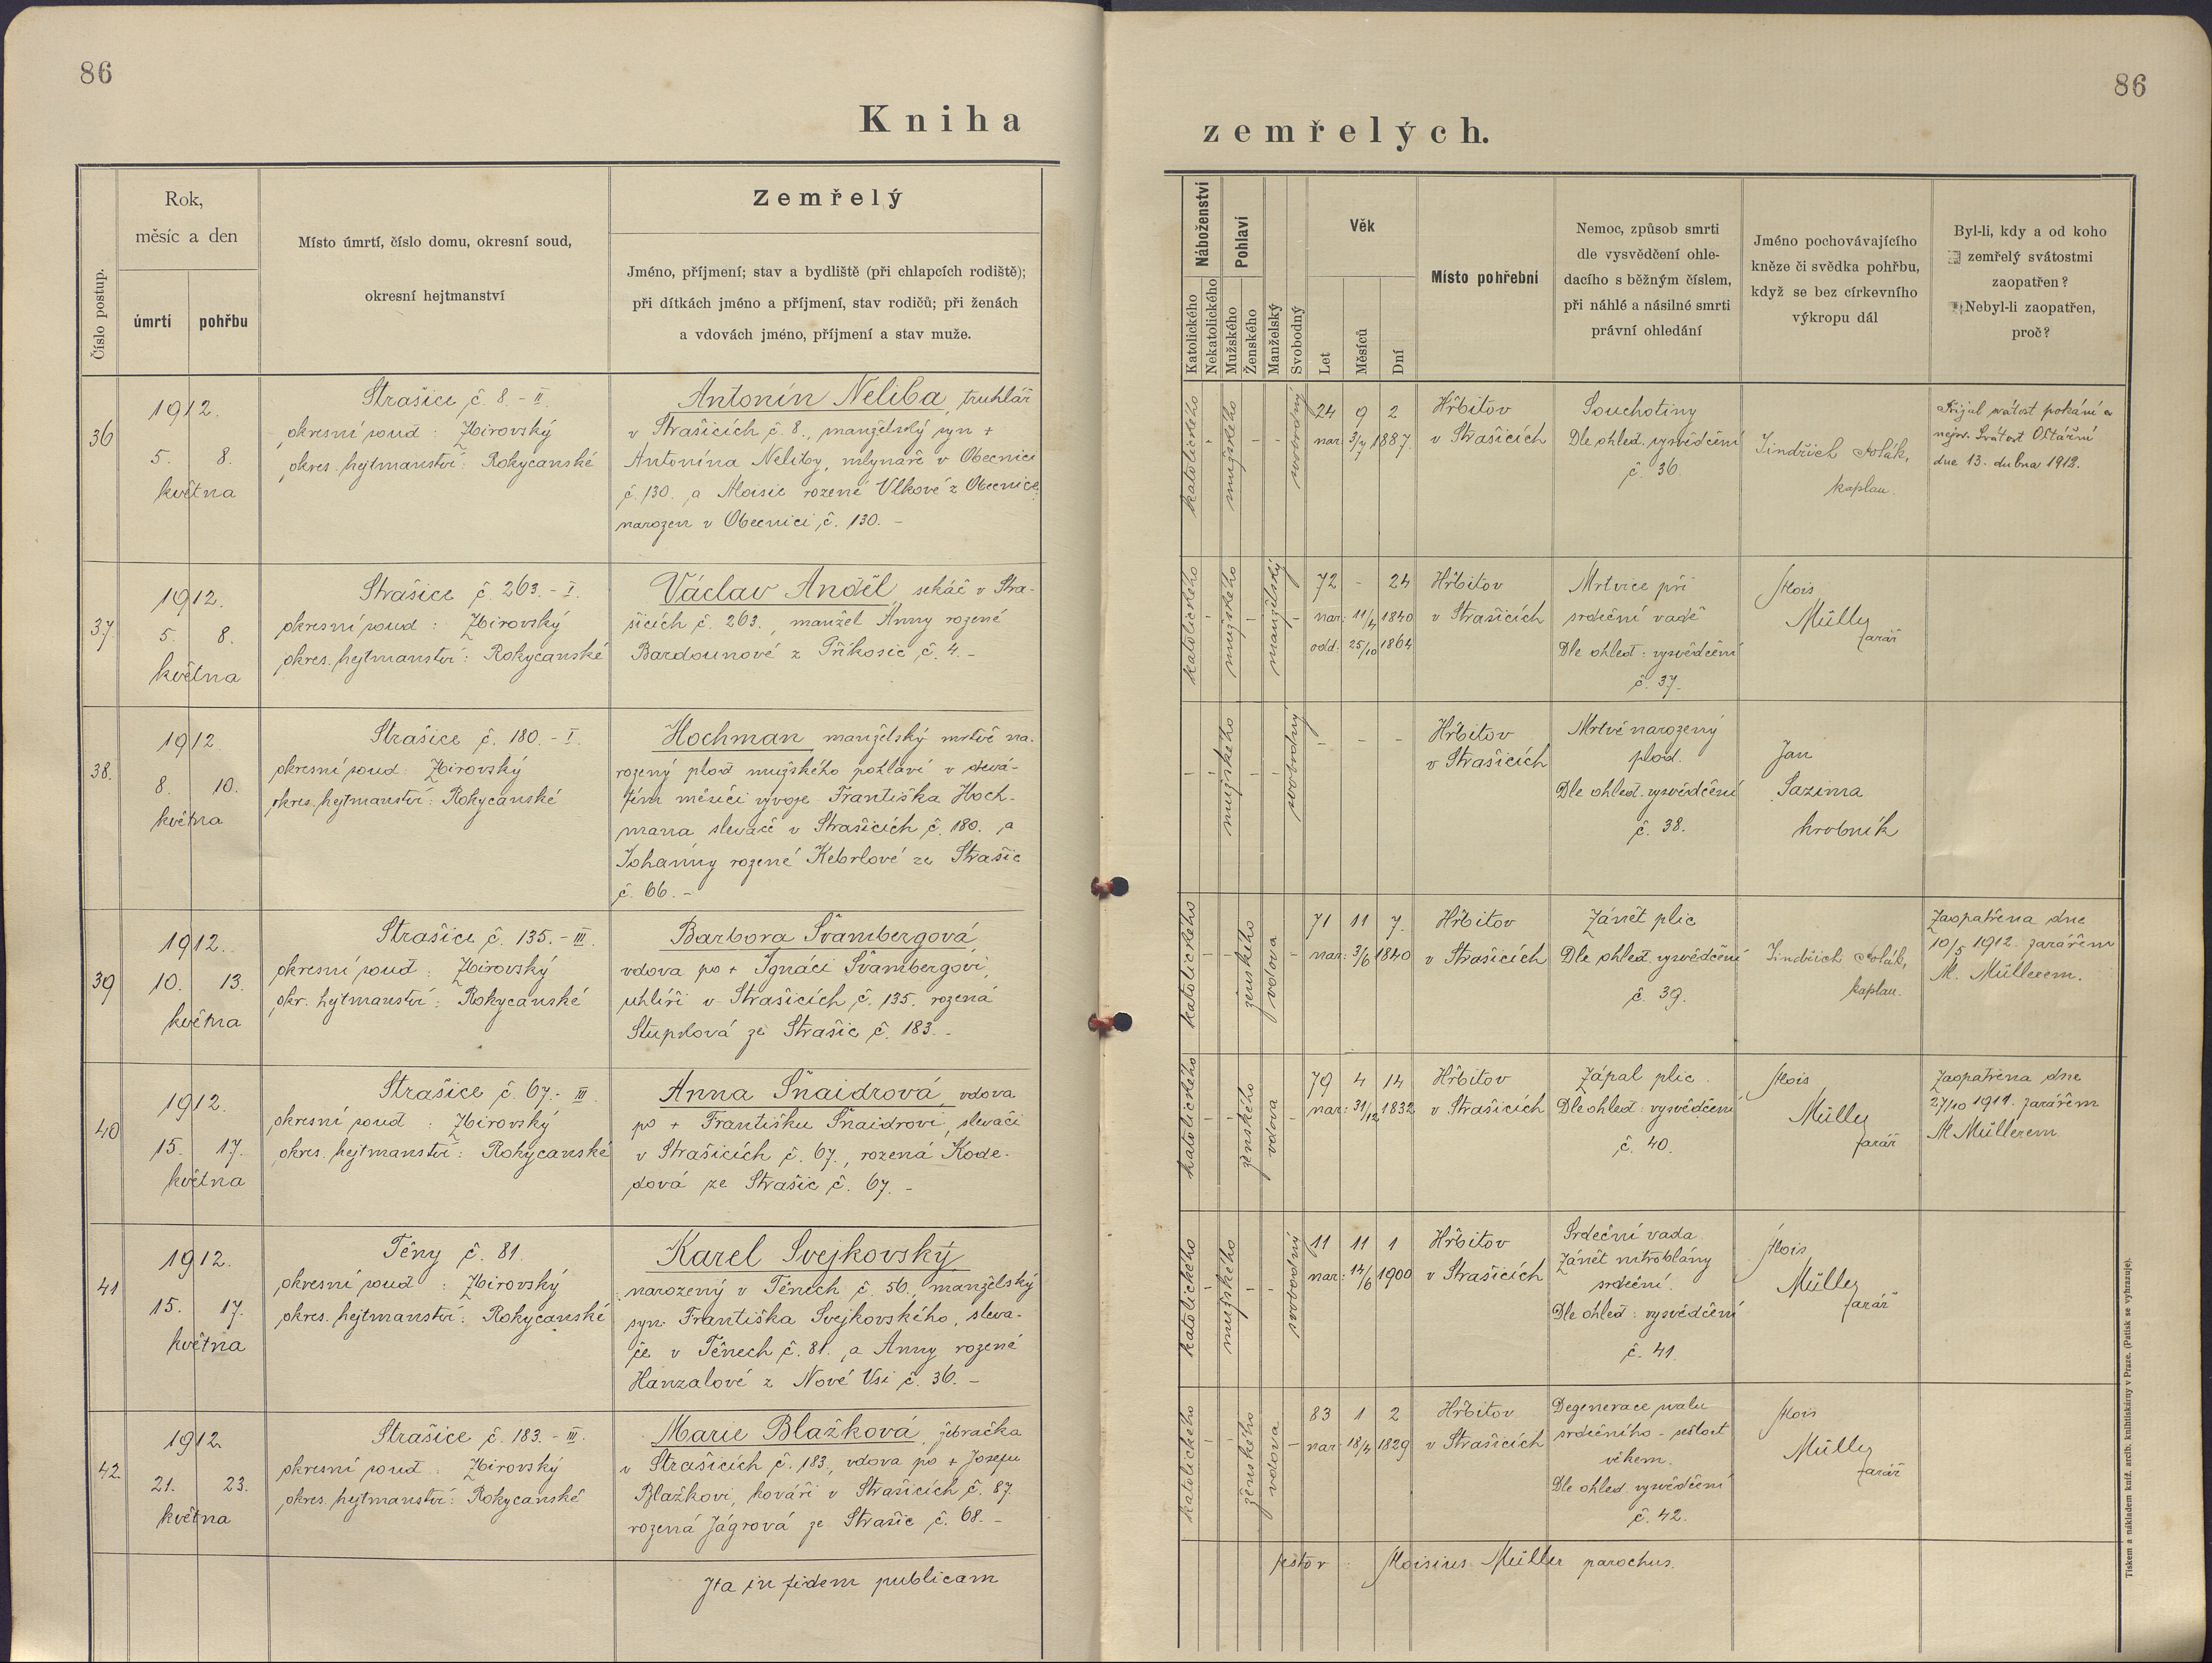 86
Kniha
Číslo postup.
Rok,
měsíc a den
úmrtí
pohřbu
Místo úmrtí, číslo domu, okresní soud,
okresní hejtmanství
Zemřelý
Jméno, příjmení; stav a bydliště (při chlapcích rodiště);
při dítkách jméno a příjmení, stav rodičů; při ženách
a vdovách jméno, příjmení a stav muže.
36
1912.
5. 8.
května
Strašice č. 8. - II.
okresní soud : Zbirovský
okres. hejtmanství : Rokycanské
Antonín Neliba, truhlář
v Strašicích č. 8., manželský syn +
Antonína Neliby, mlynáře v Obecnici
č. 130. a Aloisie rozené Vlkové z Obecnice,
narozen v Obecnici č. 130. -
37.
1912.
5. 8.
května
Strašice č. 263. - I.
okresní soud : Zbirovský
okres. hejtmanství : Rokycanské
Václav Anděl, sekáč v Stra-
šicích č. 263., manžel Anny rozené
Bardounové z Příkosic č. 4. -
38.
1912.
8. 10.
května
Strašice č. 180. - I.
okresní soud : Zbirovský
okres. hejtmanství : Rokycanské
Hochman manželský mrtvě na-
rozený plod mužského pohlaví v devá-
tém měsíci vývoje Františka Hoch-
mana slevače v Strašicích č. 180. a
Johanny rozené Kebrlové ze Strašic
č. 66. -
39
1912.
10. 13.
května
Strašice č. 135. - III.
okresní soud : Zbirovský
okr. hejtmanství : Rokycanské
Barbora Švambergová,
vdova po + Ignáci Švambergovi,
uhlíři v Strašicích č. 135. rozená
Stupková ze Strašic č. 183. -
40
1912.
15. 17.
května
Strašice č. 67. - III.
okresní soud : Zbirovský
okres. hejtmanství : Rokycanské
Anna Šnaidrová, vdova
po + Františku Šnaidrovi, slevači
v Strašicích č. 67., rozená Kode-
dová ze Strašic č. 67. -
41
1912.
15. 17.
května
Těny č. 81.
okresní soud : Zbirovský
okres. hejtmanství : Rokycanské
Karel Svejkovský
narozený v Těnech č. 56., manželský
syn Františka Svejkovského, sleva-
če v Těnech č. 81. a Anny rozené
Hanzalové z Nové Vsi č. 36. -
42.
1912.
21. 23.
května
Strašice č. 183. - III.
okresní soud : Zbirovský
okres. hejtmanství : Rokycanské
Marie Blažková, žebračka
v Strašicích č. 183, vdova po + Josefu
Blažkovi, kováři v Strašicích č. 87.
rozená Jágrová ze Strašic č. 68. -
Ita in fidem publicam
86
zemřelých.
Náboženství
Katolického
Nekatolického
Pohlaví
Mužského
Ženského
Manželský
Svobodný
Věk
Let
Měsíců
Dní
Místo pohřební
Nemoc, způsob smrti
dle vysvědčení ohle-
dacího s běžným číslem,
při náhlé a násilné smrti
právní ohledání
Jméno pochovávajícího
kněze či svědka pohřbu,
když se bez církevního
výkropu dál
Byl-li, kdy a od koho
zemřelý svátostmi
zaopatřen?
Nebyl-li zaopatřen,
proč?
katolického
mužského
svobodný
24 9 2
nar. 3/7 1887.
Hřbitov
v Strašicích
Souchotiny
Dle ohled. vysvědčení
č. 36.
Jindřich Polák,
kaplan.
Přijal svátost pokání a
nejsv. Svátost Oltářní
dne 13. dubna 1912.
katolického
mužského
manželský
72 - 24
nar: 11/4 1840
odd: 25/10 1864
Hřbitov
v Strašicích
Mrtvice při
srdeční vadě
Dle ohled : vysvědčení
č. 37.
Alois
Müller
farář
mužského
svobodný
- - -
Hřbitov
v Strašicích
Mrtvě narozený
plod.
Dle ohled. vysvědčení
č. 38.
Jan
Sazima
hrobník
katolického
ženského
vdova
71 11 7.
nar: 3/6 1840
Hřbitov
v Strašicích
Zánět plic
Dle ohled. vysvědčení
č. 39.
Jindřich Polák,
kaplan.
Zaopatřena dne
10/5 1912. farářem
Al. Müllerem.
katolického
ženského
vdova
79 4 14
nar: 31/12 1832
Hřbitov
v Strašicích
Zápal plic.
Dle ohled : vysvědčení
č. 40.
Alois
Müller
farář
Zaopatřena dne
27/10 1911. farářem
Al Müllerem
katolického
mužského
svobodný
11 11 1
nar: 14/6 1900
Hřbitov
v Strašicích
Srdeční vada.
Zánět nitroblány
srdeční.
Dle ohled : vysvědčení
č. 41.
Alois
Müller
farář
katolického
ženského
vdova
83 1 2
nar: 18/4 1829
Hřbitov
v Strašicích
Degenerace svalu
srdečního - sešlost
věkem.
Dle ohled. vysvědčení
č. 42.
Alois
Müller
farář
Aloisius Müller parochus.
Tiskem a nákladem kníž. arcib. knihtiskárny v Praze. (Patisk se vyhrazuje).